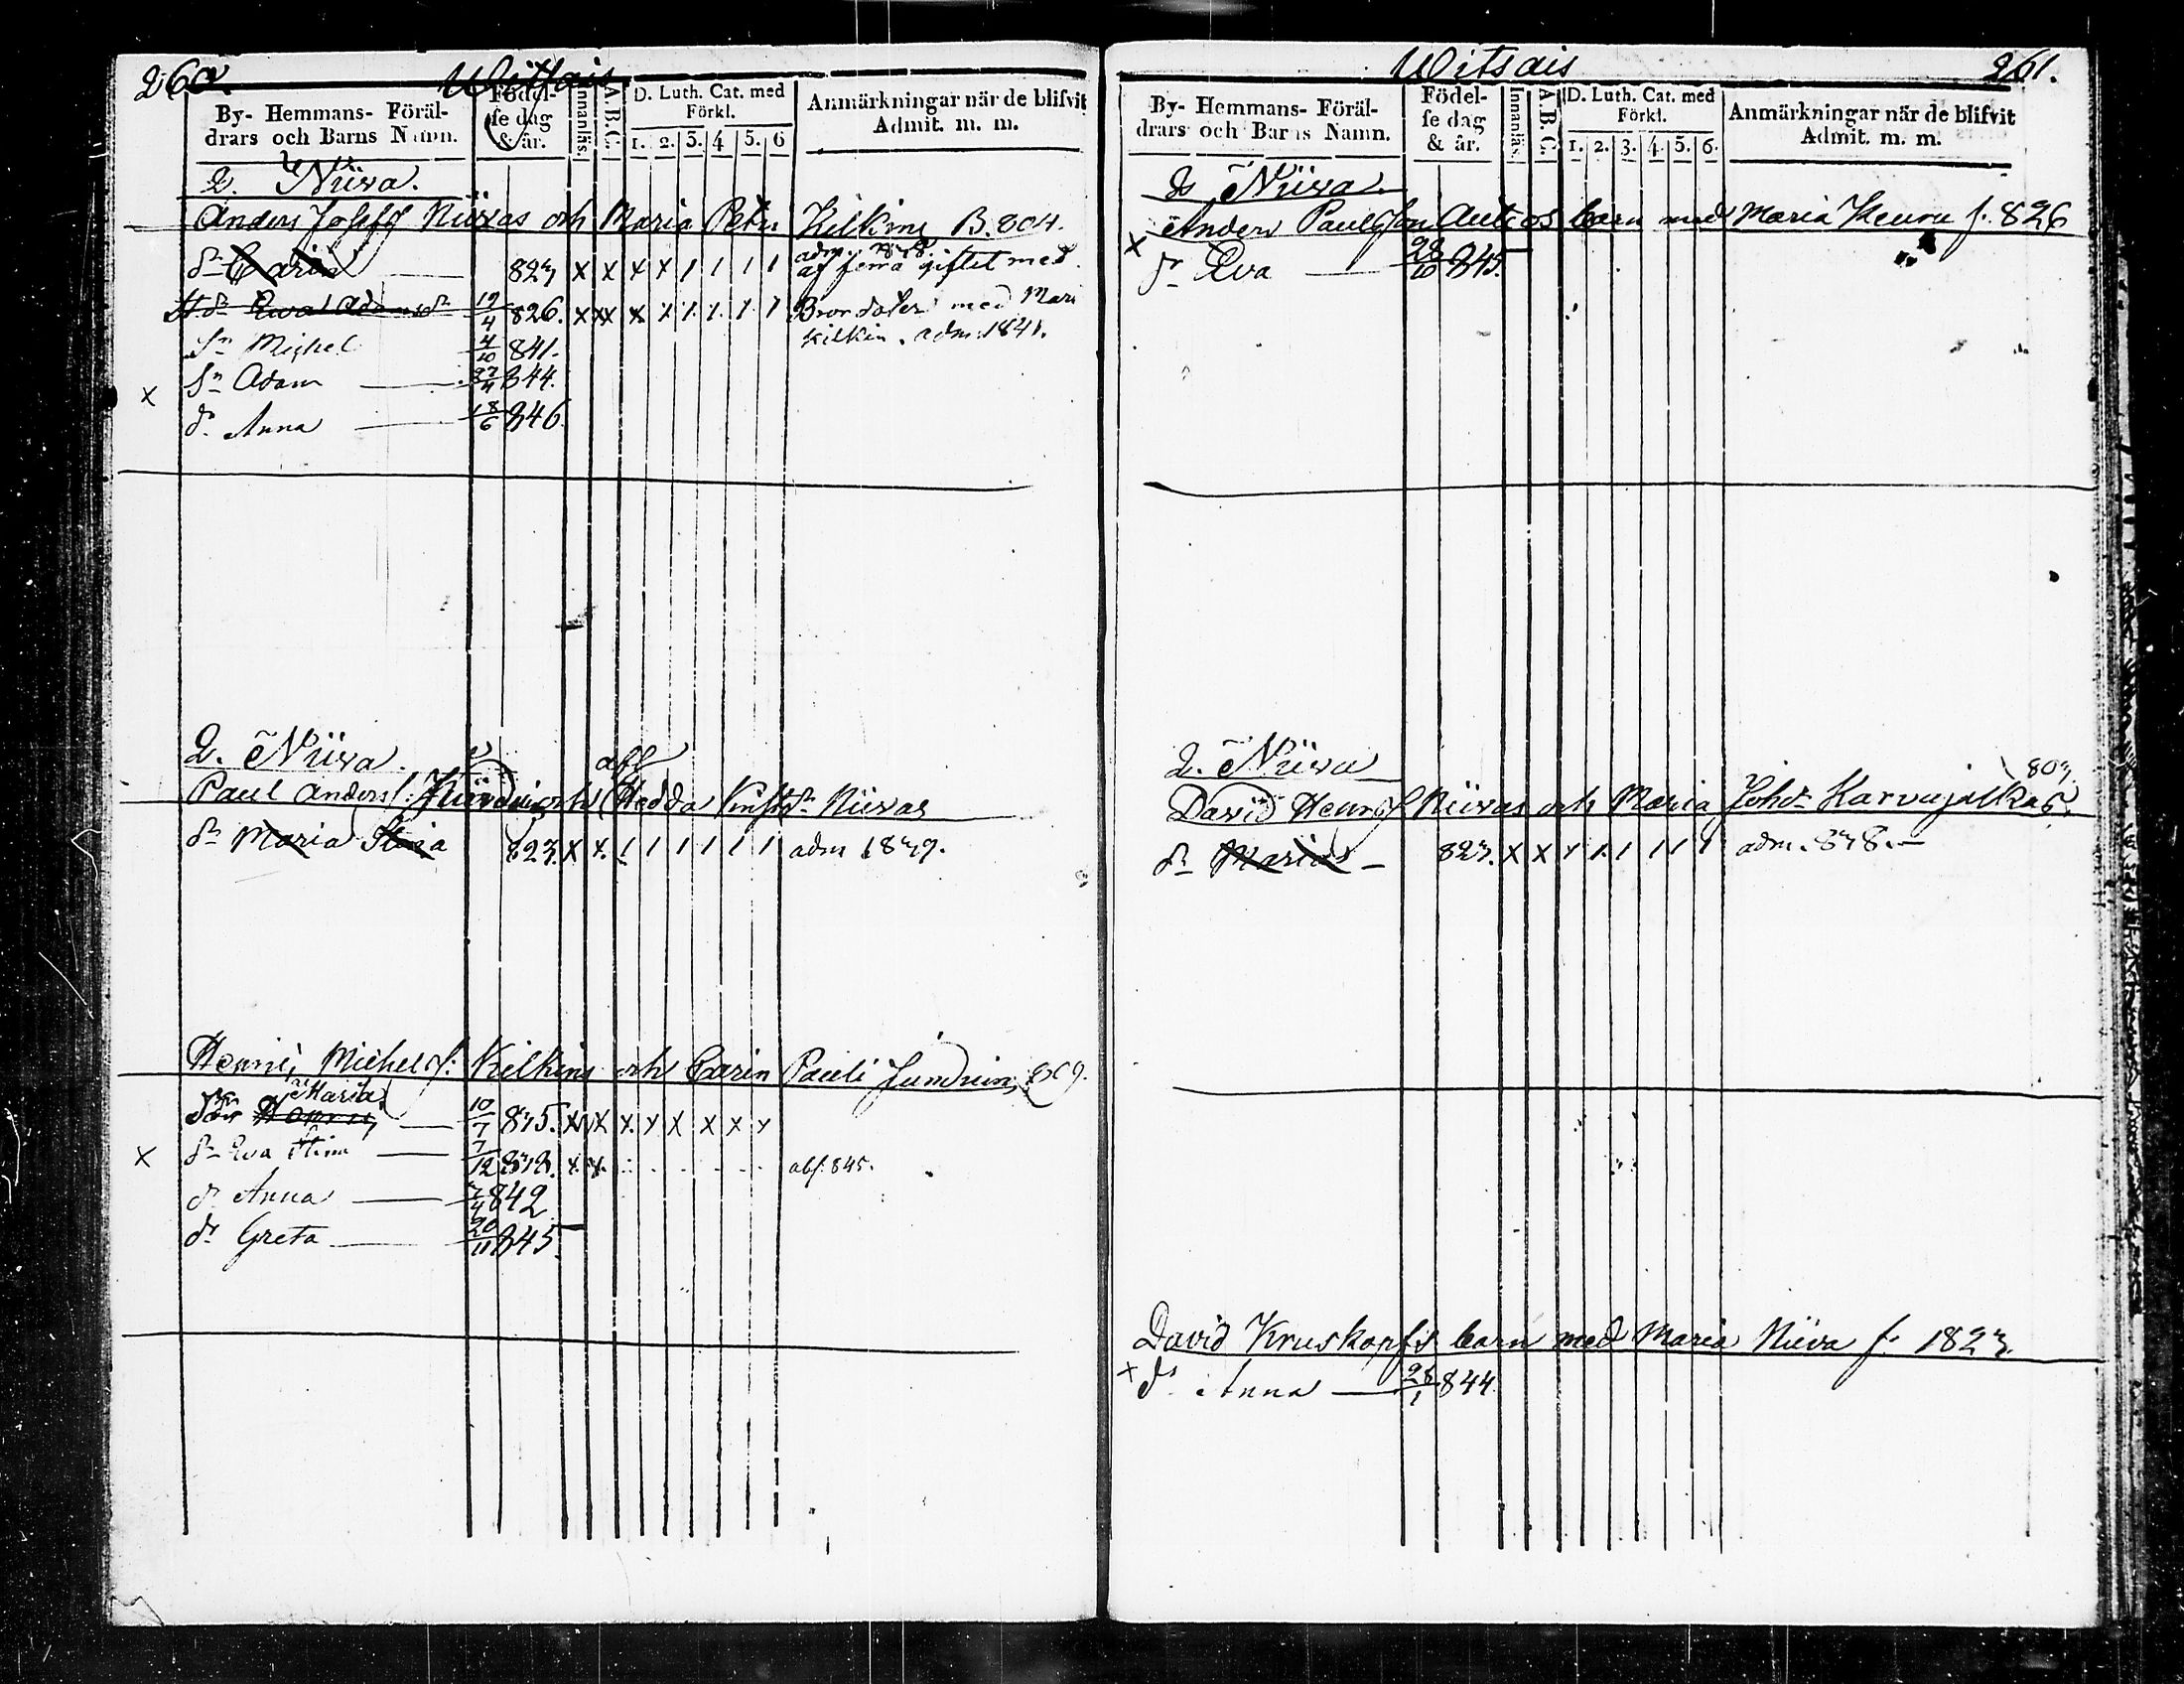 260. Witsais
By- Hemmans- Föräl-
drars och Barns Namn.
Födel-
se dag
& år.
Innanläs.
A. B. C.
D. Luth. Cat. med
Förkl.
1. 2. 3. 4 5. 6
Anmärkningar när de blifvit
Admit. m. m.
2. Niiva.
Anders Josefss Niivas och Maria Petri Kilkins B. 804.
dr Carin 823 x x x x 1 1 1 1 adm.
giftet med
dr Ewa Adamsdr 19/4 826. x xx x x 1 1 1 1 Brordoter med Mari
Kilkin. adm. 1841.
Sn Michel 4/10 841.
x Sn Adam 27/4 844.
dr Anna 18/6 846.
2. Niiva.
Paul Anders. och Hedda Niivas
dr Maria Stina 823. x x. 1 1 1 1 1 1 adm 1839.
Henric Michels. Kilkins och Carin Pauli Junduin, 809.
Maria
10/7 835. x x x x x x x x
x dr Eva Stina 7/12 838. x. x. abs. 845.
dr Anna 7/4 842
dr Greta 20/11 845.
Witsais 261.
By- Hemmans- Föräl-
drars och Barns Namn.
Födel-
se dag
& år.
Innanläs.
A. B. C.
D. Luth. Cat. med
Förkl.
1. 2. 3. 4. 5. 6.
Anmärkningar när de blifvit
Admit. m. m.
2 Niiva.
Anders Paulsson Autios barn med Maria Keuru f. 826
x dr Eva 28/10 845.
2. Niiva
803.
David Henrss Niivas och Maria Johdr Karvajalkas.
dr Maria 823. x x x 1. 1 1 1 1 adm. 838.
David Kruskopfs barn med Maria Niiva f. 1823.
x dr Anna 28/1 844.